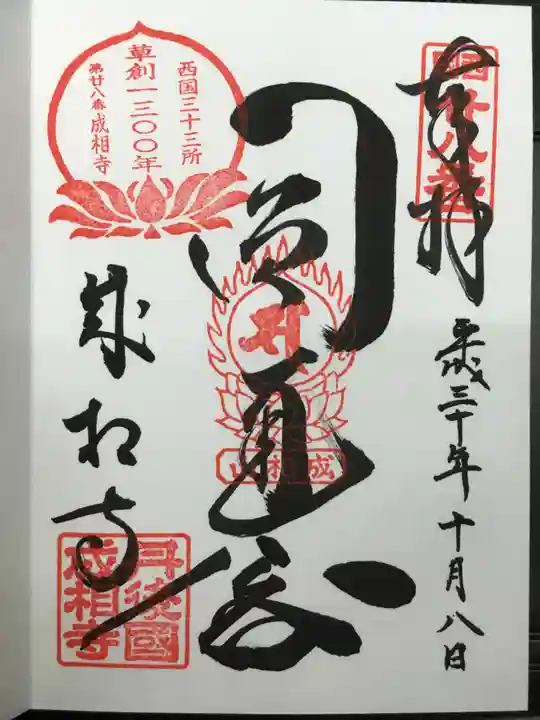 奉拝
西国廿八番
平成三十年十月八日
圓通殿
成相山
西国三十三所
草創一三〇〇年
第廿八番 成相寺
成相寺
丹後國
成相寺